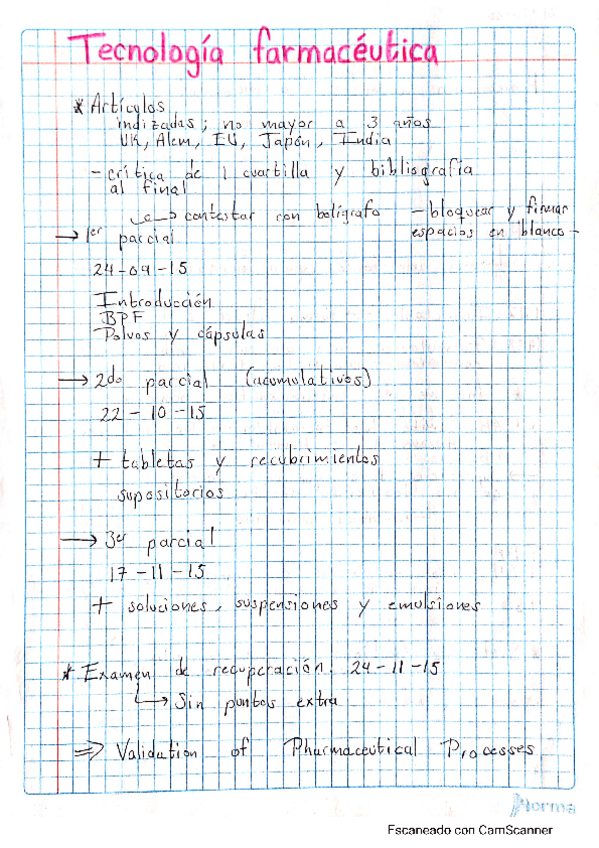 Tecnología farmacéutica
* Artículos
indizadas; no mayor a 3 años
UK, Alem, EU, Japón, India
- crítica de 1 cuartilla y bibliografía
al final
contestar con bolígrafo - bloquear y firmar
espacios en blanco -
→ 1er parcial
24-09-15
Introducción
BPF
Polvos y cápsulas
→ 2do parcial (acumulativos)
22-10-15
+ tabletas y recubrimientos
supositorios
→ 3er parcial
17-11-15
+ soluciones, suspensiones y emulsiones
* Examen de recuperación: 24-11-15
↳ Sin puntos extra
⇒ Validation of Pharmaceutical Processes
Norma
Escaneado con CamScanner